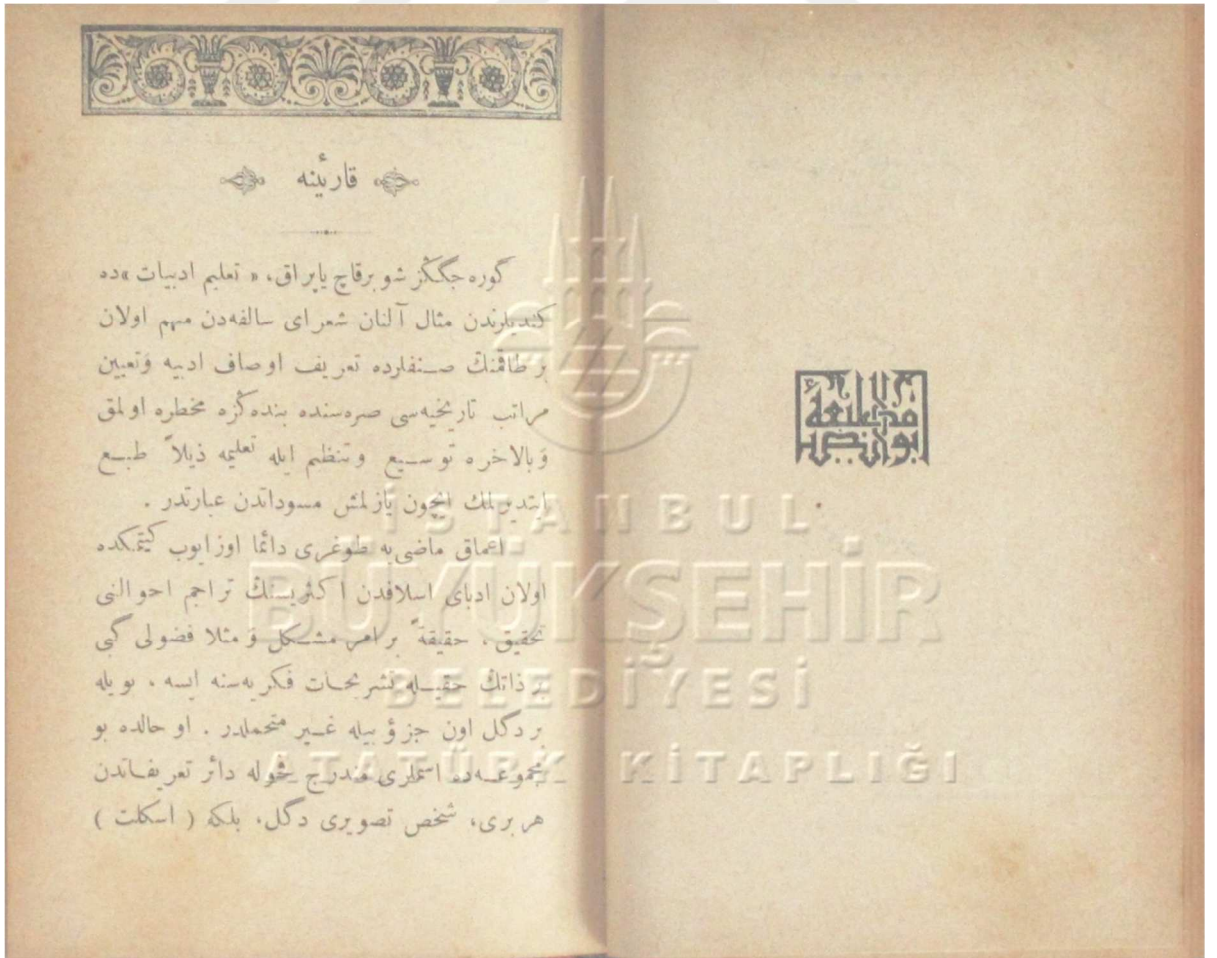 مطبعۀ
ابوالضيا
قارئينه
گوره‌جگكز شو برقاچ ياپراق، « تعليم ادبيات »ده
كنديلرندن مثال آلنان شعراى سالفه‌دن مهم اولان
بر طاقمنڭ صنفلرده تعريف اوصاف ادبيه وتعيين
مراتب تاريخيه‌سى صره‌سنده بنده‌كزه مخطره اولمق
وبالاخره توسيع وتنظيم ايله تعليمه ذيلاً طبع
ايتديرلمك ايچون يازلمش مسوداتدن عبارتدر .
اعماق ماضى‌يه طوغرى دائما اوزايوب كيتمكده
اولان ادباى اسلافدن اكثريسنڭ تراجم احوالنى
تحقيق، حقيقةً بر امر مشكل و مثلا فضولى كبى
بر ذاتڭ حقيله تشريحات فكريه‌سنه ايسه، بويله
بر دكل اون جزؤ بيله غير متحملدر . او حالده بو
مجموعه‌ده اسملرى مندرج فحوله دائر تعريفاتدن
هر برى، شخص تصويرى دكل، بلكه ( اسكلت )
İSTANBUL
BÜYÜKŞEHİR
BELEDİYESİ
ATATÜRK KİTAPLIĞI